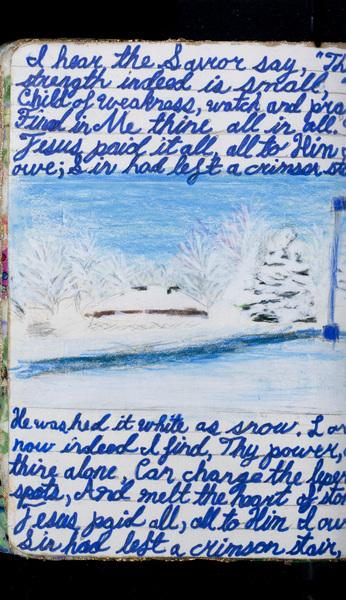 I hear the Savior say, "Th
strength indeed is small,
Child of weakness, watch and pra
Find in Me thine all in all."
Jesus paid it all, all to Him
owe; Sir had left a crimson sta
He washed it white as snow. Lor
now indeed I find, Thy power,
thine alone, Can change the leper
spots, And melt the heart of ston
Jesus paid all, all to Him I ow
Sir had left a crimson stair,